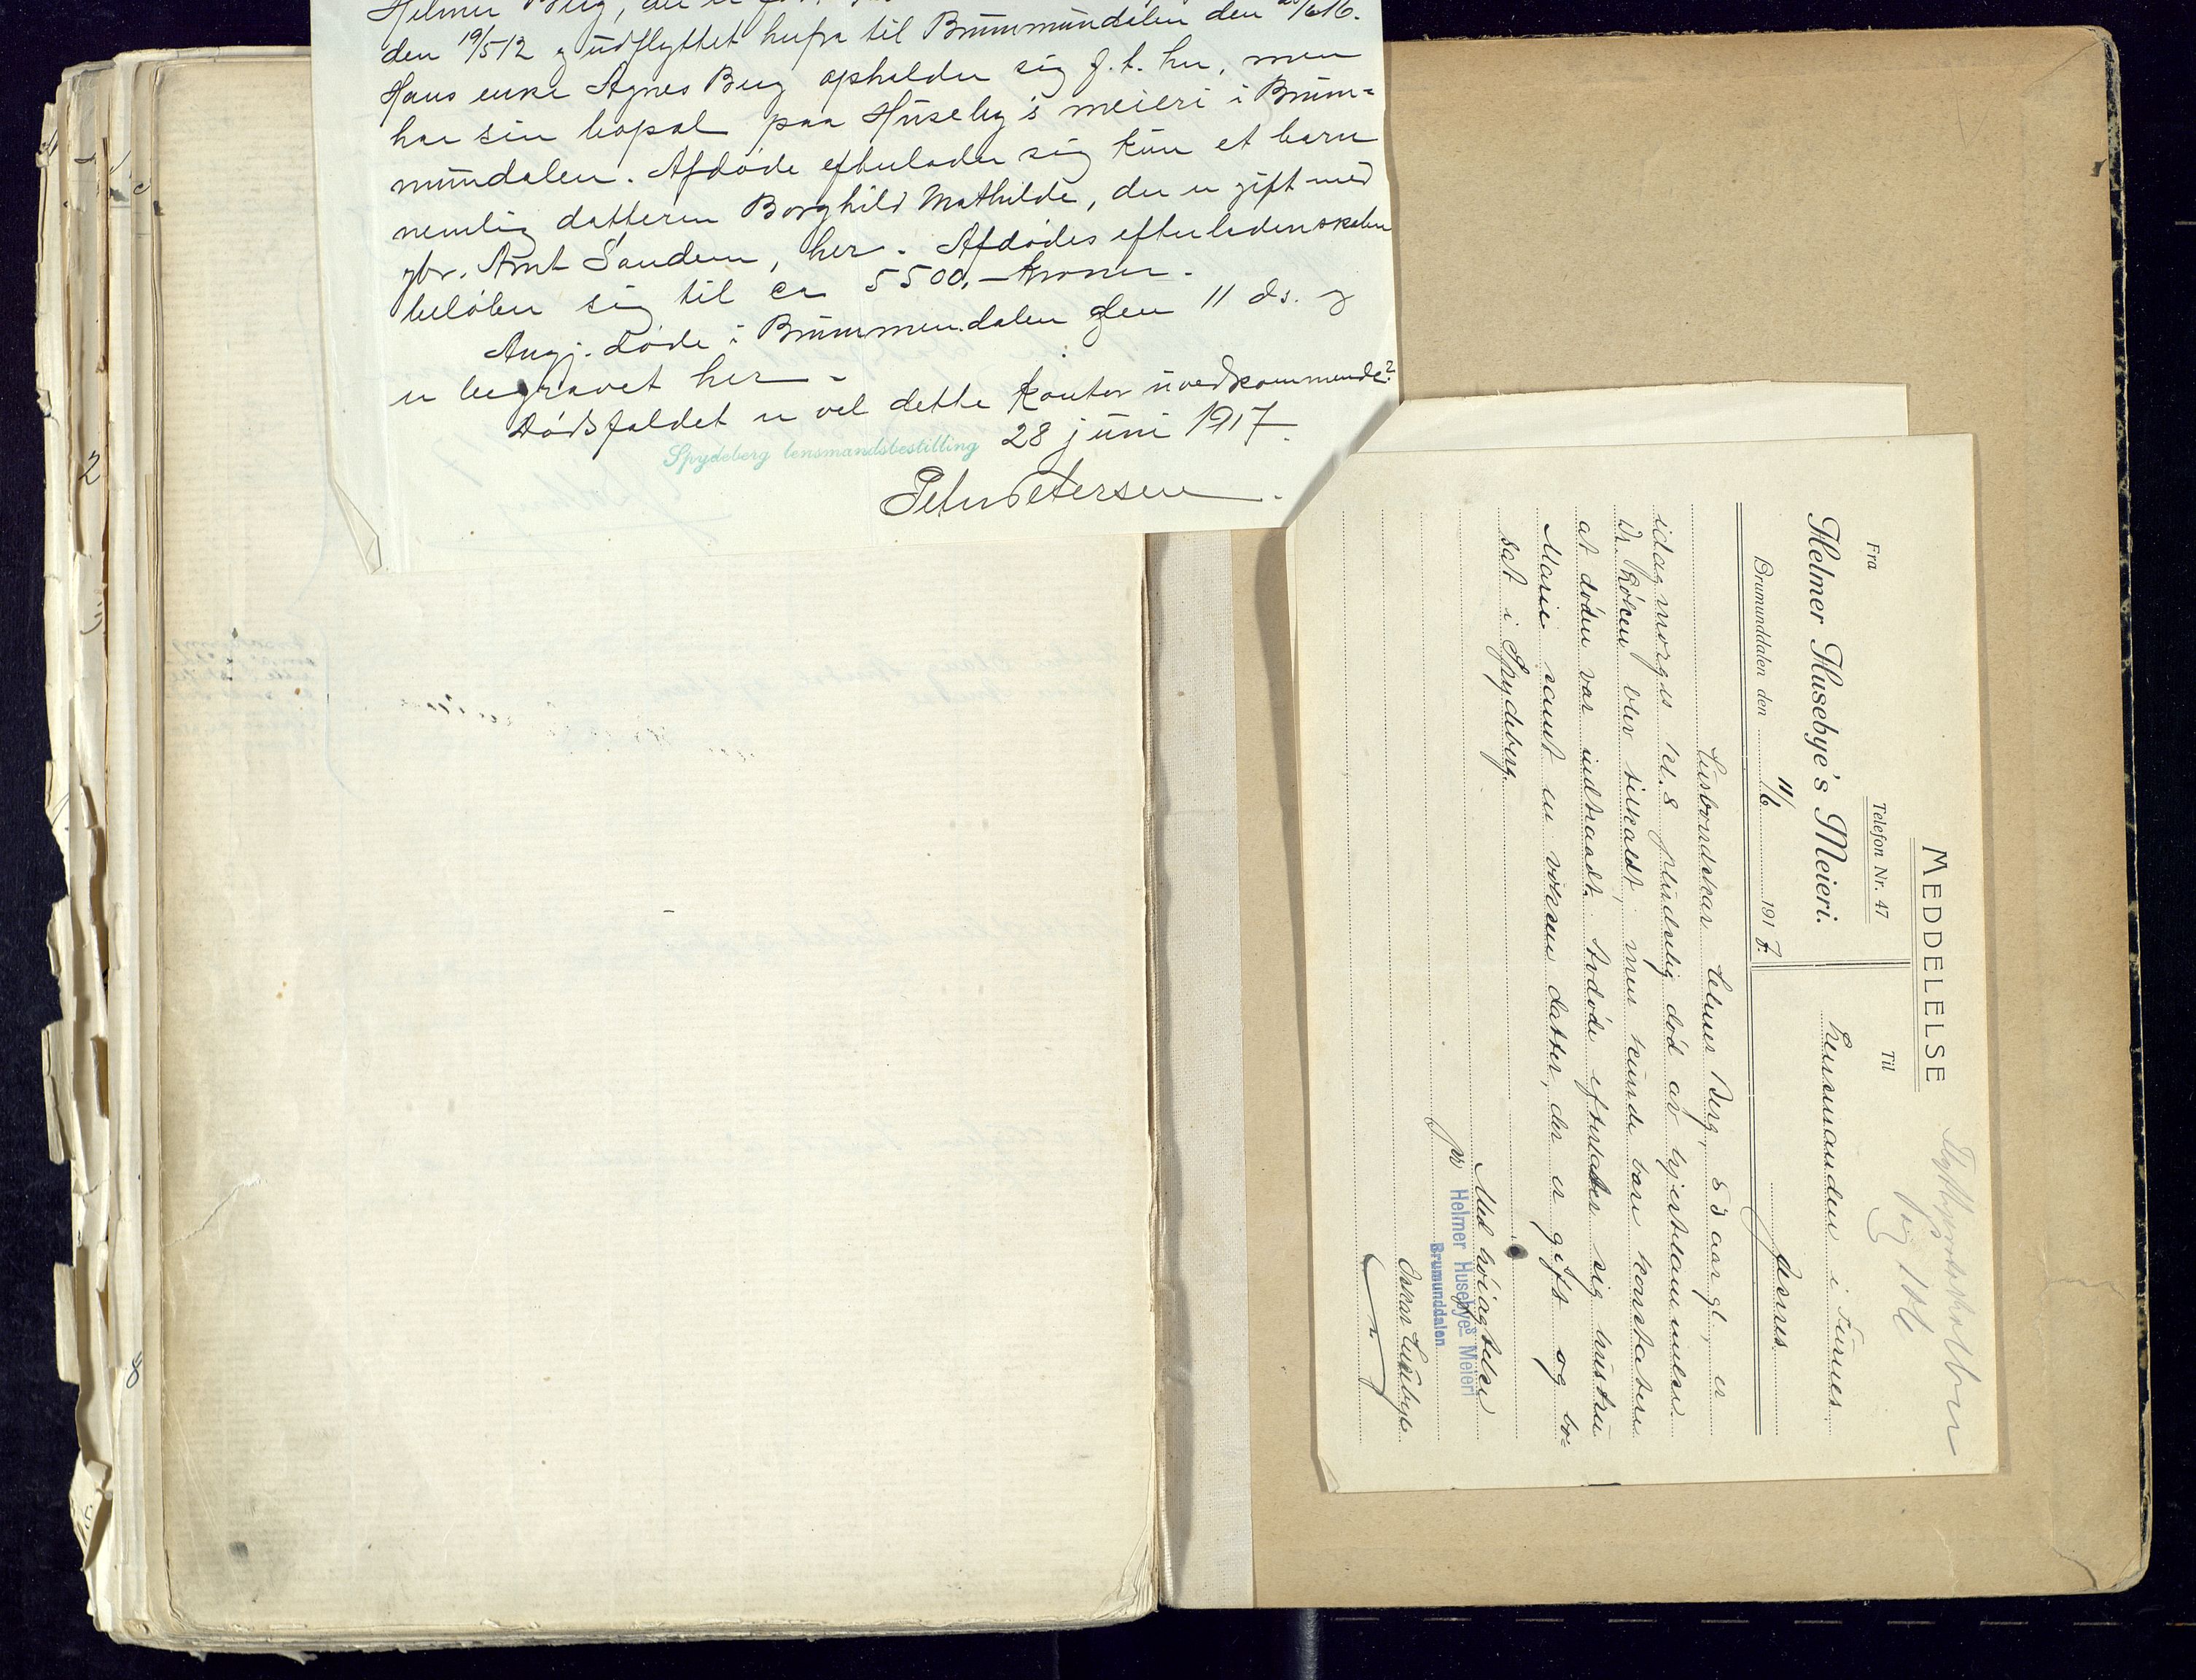 Helmer Berg, der er
den 19/5 12 og udflyttet herfra til Brummundalen den 20/6 16.
Hans enke Agnes Berg opholder sig f.t. her, men
har sin bopæl paa Huseby's meieri i Brum=
mundalen. Afdøde efterlader sig kun et barn
nemlig datteren Borghild Mathilde, der er gift med
gbr. Arnt Sanden, her. Afdødes efterladenskaber
beløber sig til ca 5500,- kroner.
Angj. døde i Brummendalen den 11 ds. og
er begravet her -
Dødsfaldet er vel dette kontor uvedkommende?
Spydeberg lensmandsbestilling 28 juni 1917.
Peter Petersen.
MEDDELELSE
Fra
Telefon Nr. 47
Til
Helmer Husebye's Meieri.
Lensmanden i Furnes
Brumunddalen den 11/6 1917.
Furnes.
Husbondskar Helmer Berg, 53 aar gl., er
idag morges kl. 8 pludselig død av hjertelammelse.
Dr. blev tilkaldt, men kunde bare konstatere
at døden var indtraadt. Avdøde efterlater sig hustru
Marie samt en voksen datter, der er gift og bo-
sat i Spydeberg.
Med høiagtelse
pr Helmer Husebye's Meieri
Brumunddalen
Oskar Husebye
2
8